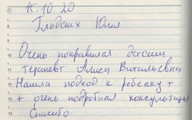 14.10.20
Гладких Юлия
Очень понравилась детский
терапевт Алиса Витальевна
Нашла подход к ребенку +
+ очень подробная консультация
Спасибо